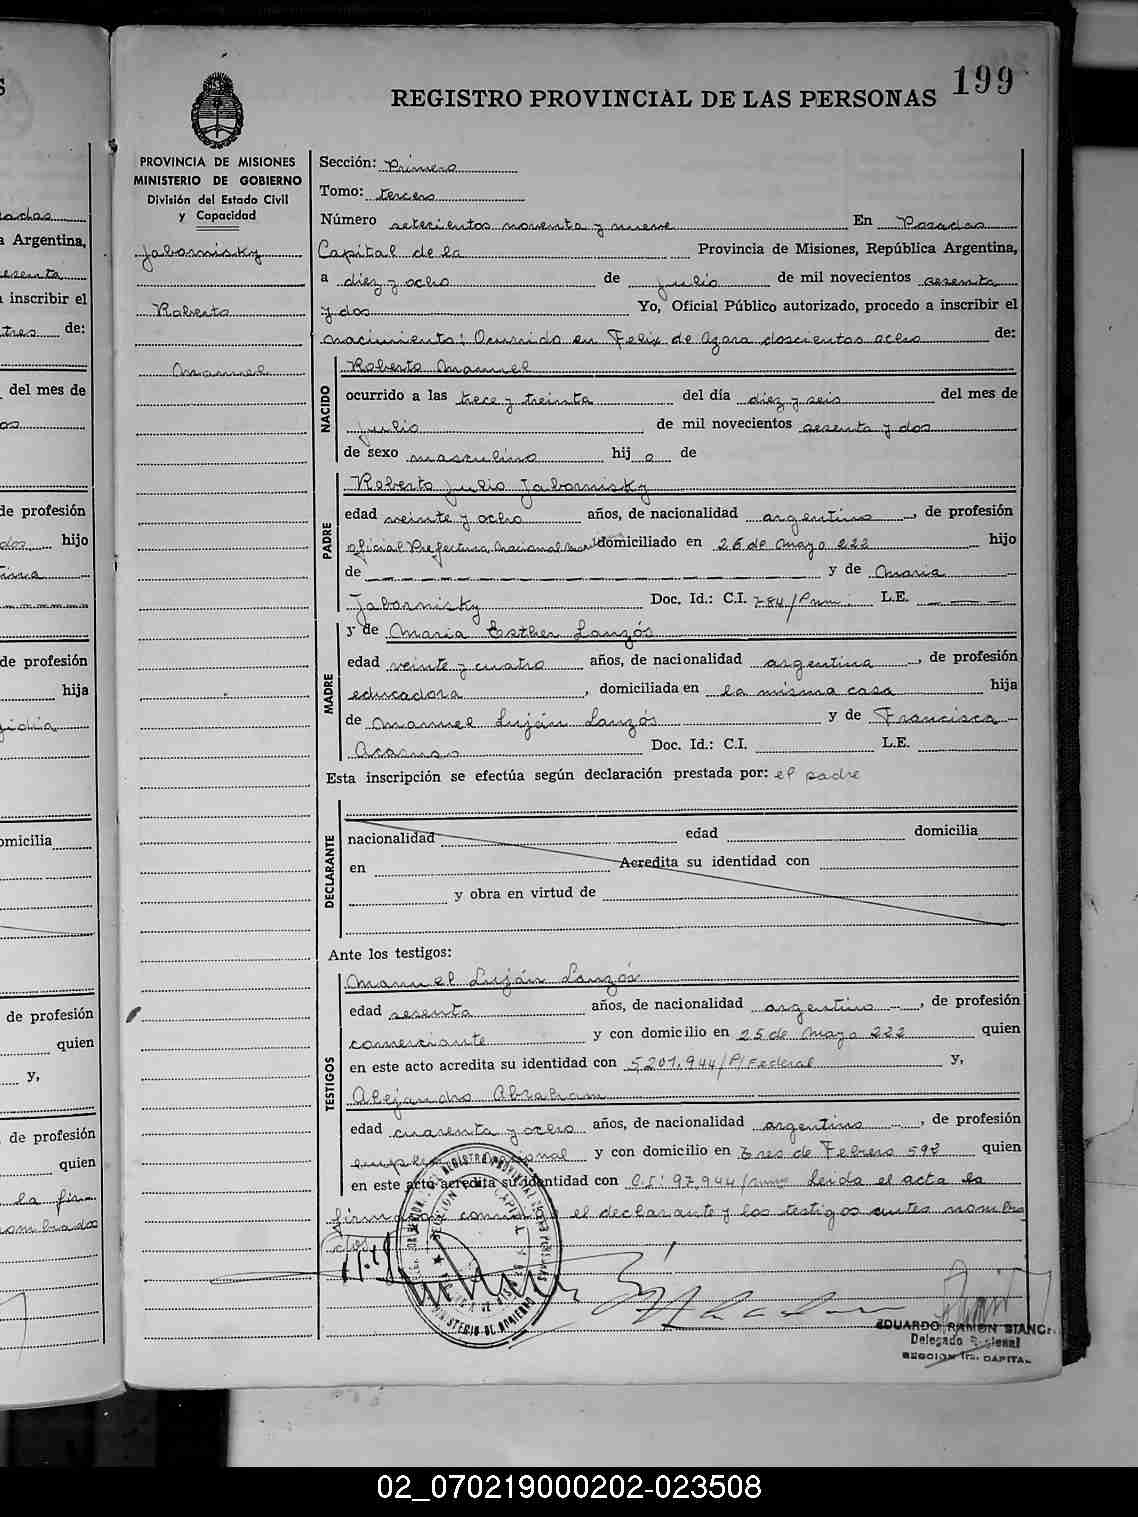 199
REGISTRO PROVINCIAL DE LAS PERSONAS
PROVINCIA DE MISIONES
MINISTERIO DE GOBIERNO
División del Estado Civil
y Capacidad
Jabornisky
Roberto
Manuel
Sección: Primero
Tomo: tercero
Número setecientos noventa y nueve En Posadas
Capital de la Provincia de Misiones, República Argentina,
a diez y ocho de julio de mil novecientos sesenta
y dos Yo, Oficial Público autorizado, procedo a inscribir el
nacimiento: Ocurrido en Felix de Azara doscientos ocho de:
NACIDO
Roberto Manuel
ocurrido a las trece y treinta del día diez y seis del mes de
julio de mil novecientos sesenta y dos
de sexo masculino hij o de
PADRE
Roberto Julio Jabornisky
edad veinte y ocho años, de nacionalidad argentino, de profesión
oficial Prefectura Nacional domiciliado en 25 de Mayo 222 hijo
de y de Maria
Jabornisky Doc. Id.: C.I. 784/Pnm. L.E.
MADRE
y de Maria Esther Lanzós
edad veinte y cuatro años, de nacionalidad argentina, de profesión
educadora, domiciliada en la misma casa hija
de Manuel Luján Lanzós y de Francisca
Doc. Id.: C.I. L.E.
Esta inscripción se efectúa según declaración prestada por: el padre
DECLARANTE
nacionalidad edad domicilia
en Acredita su identidad con
y obra en virtud de
Ante los testigos:
TESTIGOS
Manuel Luján Lanzós
edad sesenta años, de nacionalidad argentino, de profesión
comerciante y con domicilio en 25 de Mayo 222 quien
en este acto acredita su identidad con 5,201.944/P/Federal y,
Alejandro Abraham
edad cuarenta y ocho años, de nacionalidad argentino, de profesión
y con domicilio en Tres de Febrero 592 quien
en este acto acredita su identidad con C.I: 97.944/ Leida el acta la
firman conmigo el declarante y los testigos antes nombra
dos
EDUARDO RAMON
Delegado Regional
SECCION 1ra. CAPITAL
02_070219000202-023508